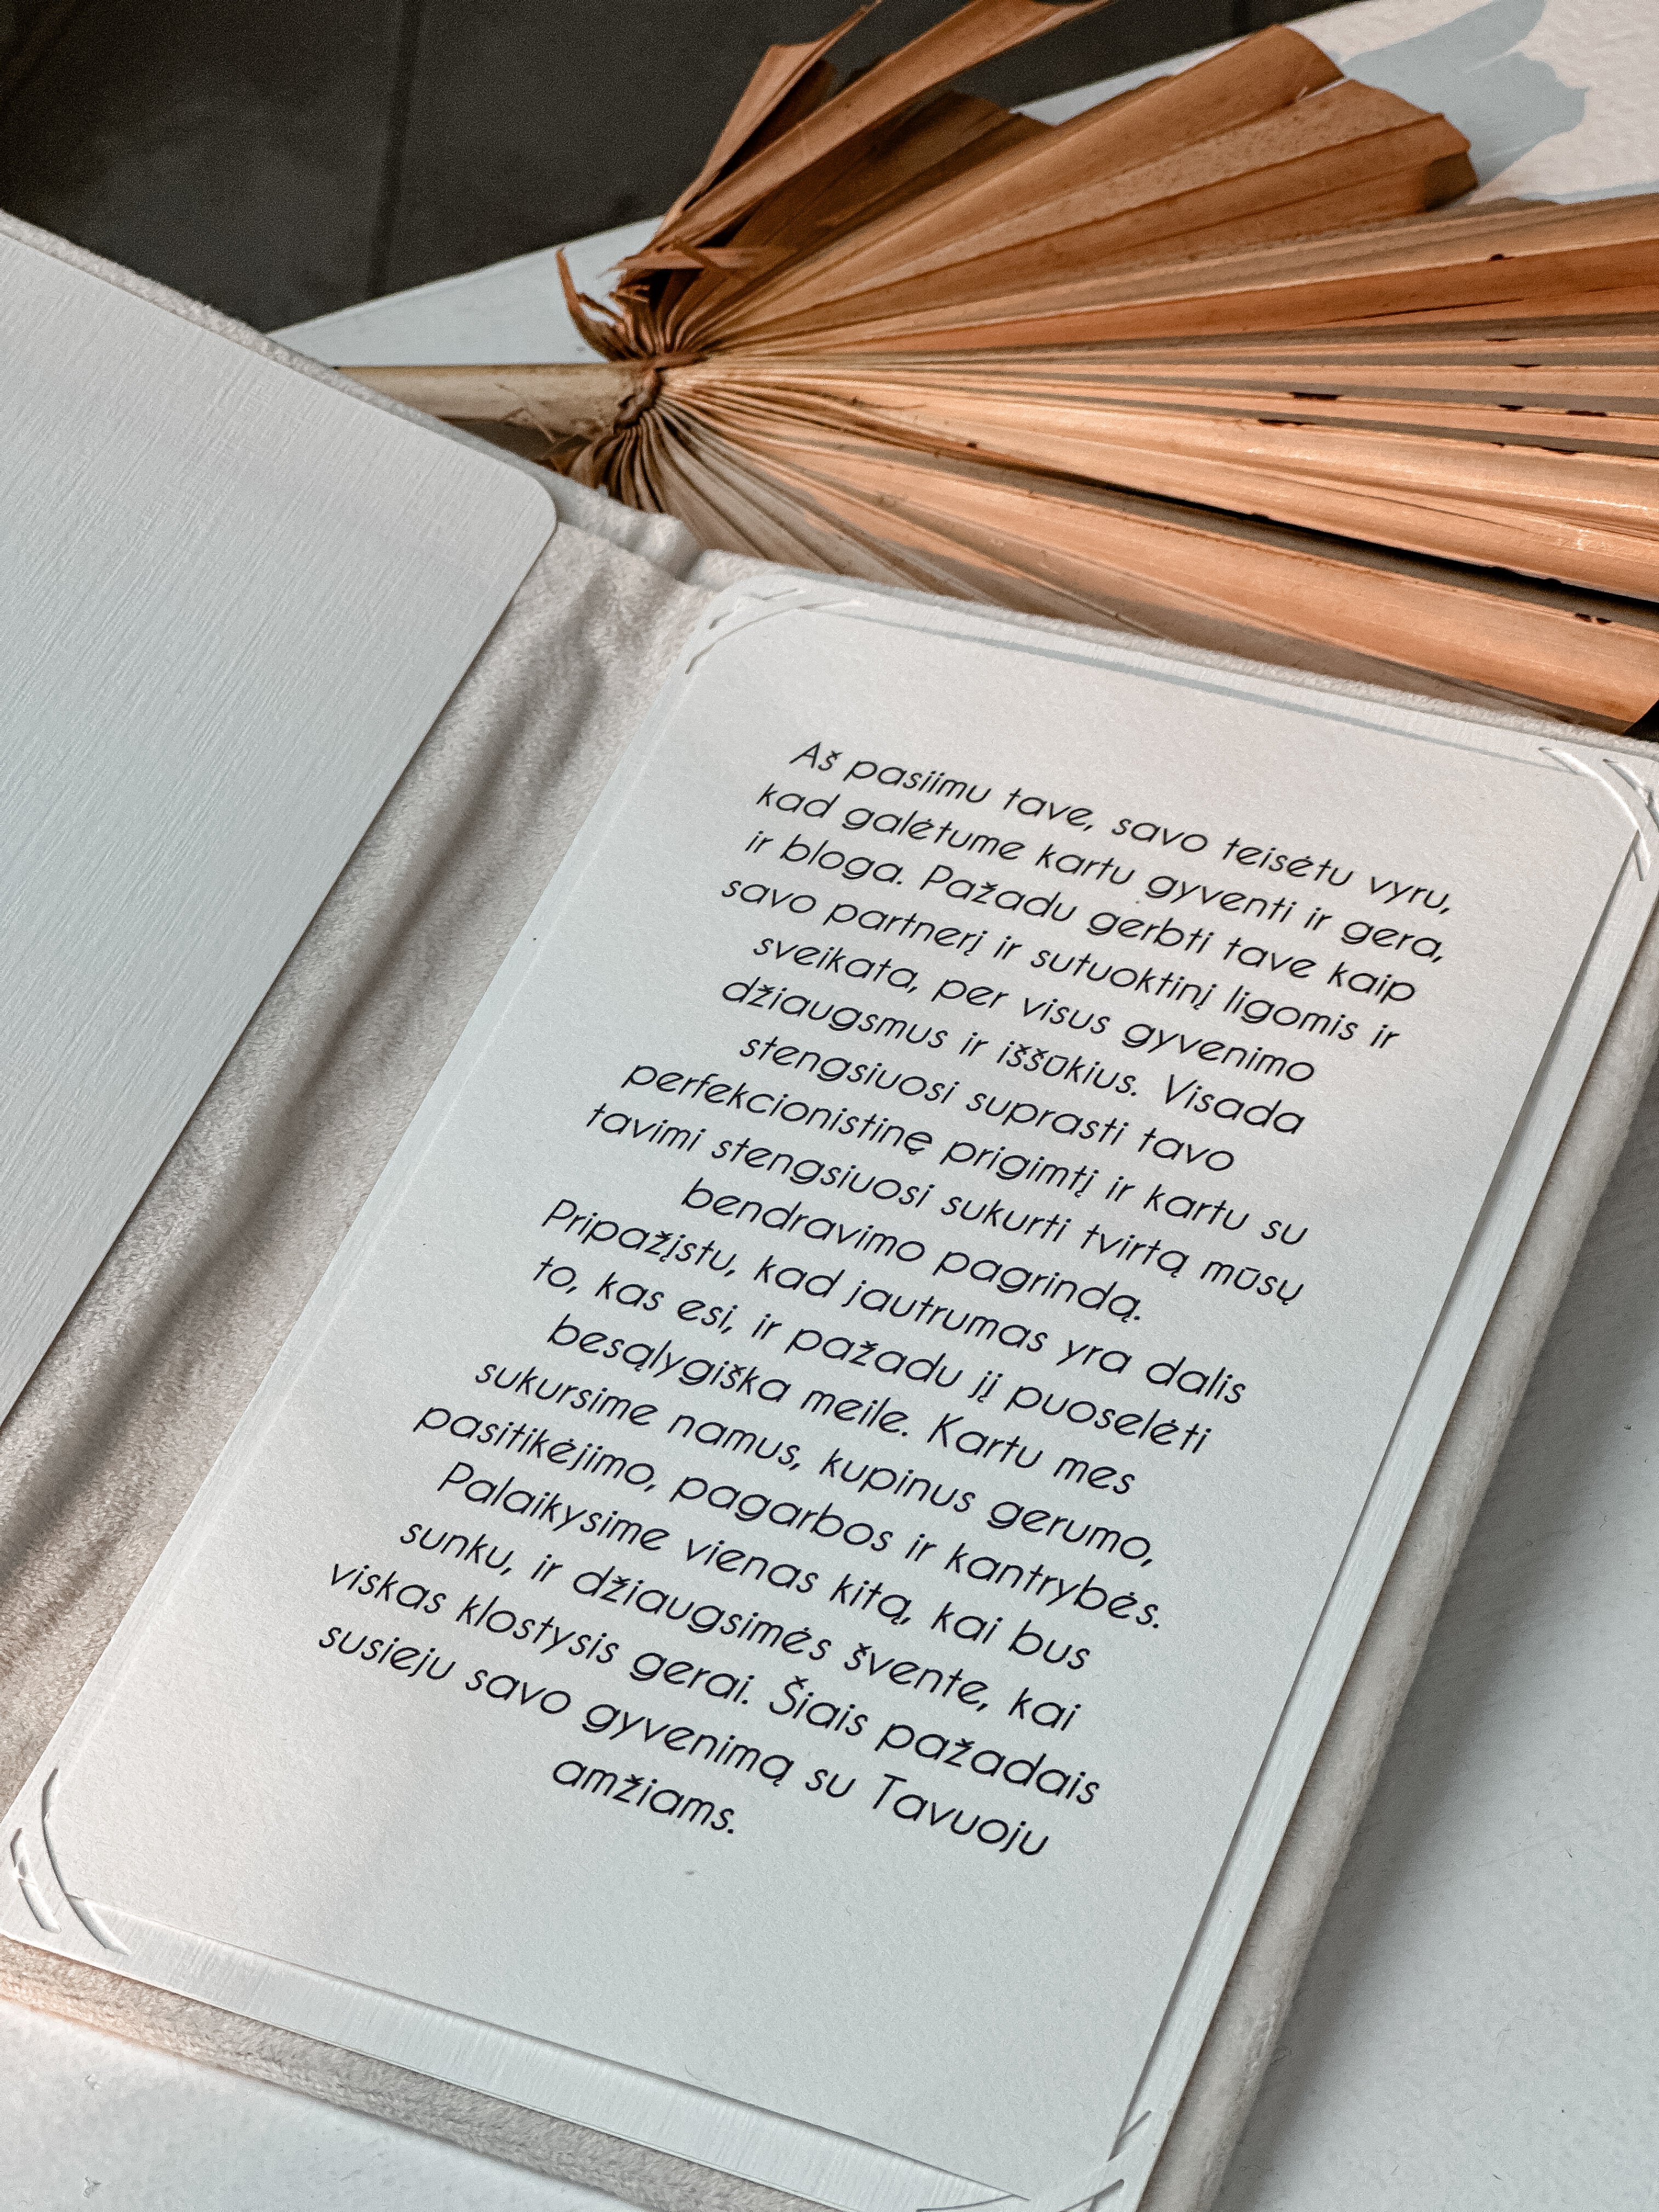 Aš pasiimu tave, savo teisėtu vyru,
kad galėtume kartu gyventi ir gera,
ir bloga. Pažadu gerbti tave kaip
savo partnerį ir sutuoktinį ligomis ir
sveikata, per visus gyvenimo
džiaugsmus ir iššūkius. Visada
stengsiuosi suprasti tavo
perfekcionistinę prigimtį ir kartu su
tavimi stengsiuosi sukurti tvirtą mūsų
bendravimo pagrindą.
Pripažįstu, kad jautrumas yra dalis
to, kas esi, ir pažadu jį puoselėti
besąlygiška meile. Kartu mes
sukursime namus, kupinus gerumo,
pasitikėjimo, pagarbos ir kantrybės.
Palaikysime vienas kitą, kai bus
sunku, ir džiaugsimės švente, kai
viskas klostysis gerai. Šiais pažadais
susieju savo gyvenimą su Tavuoju
amžiams.